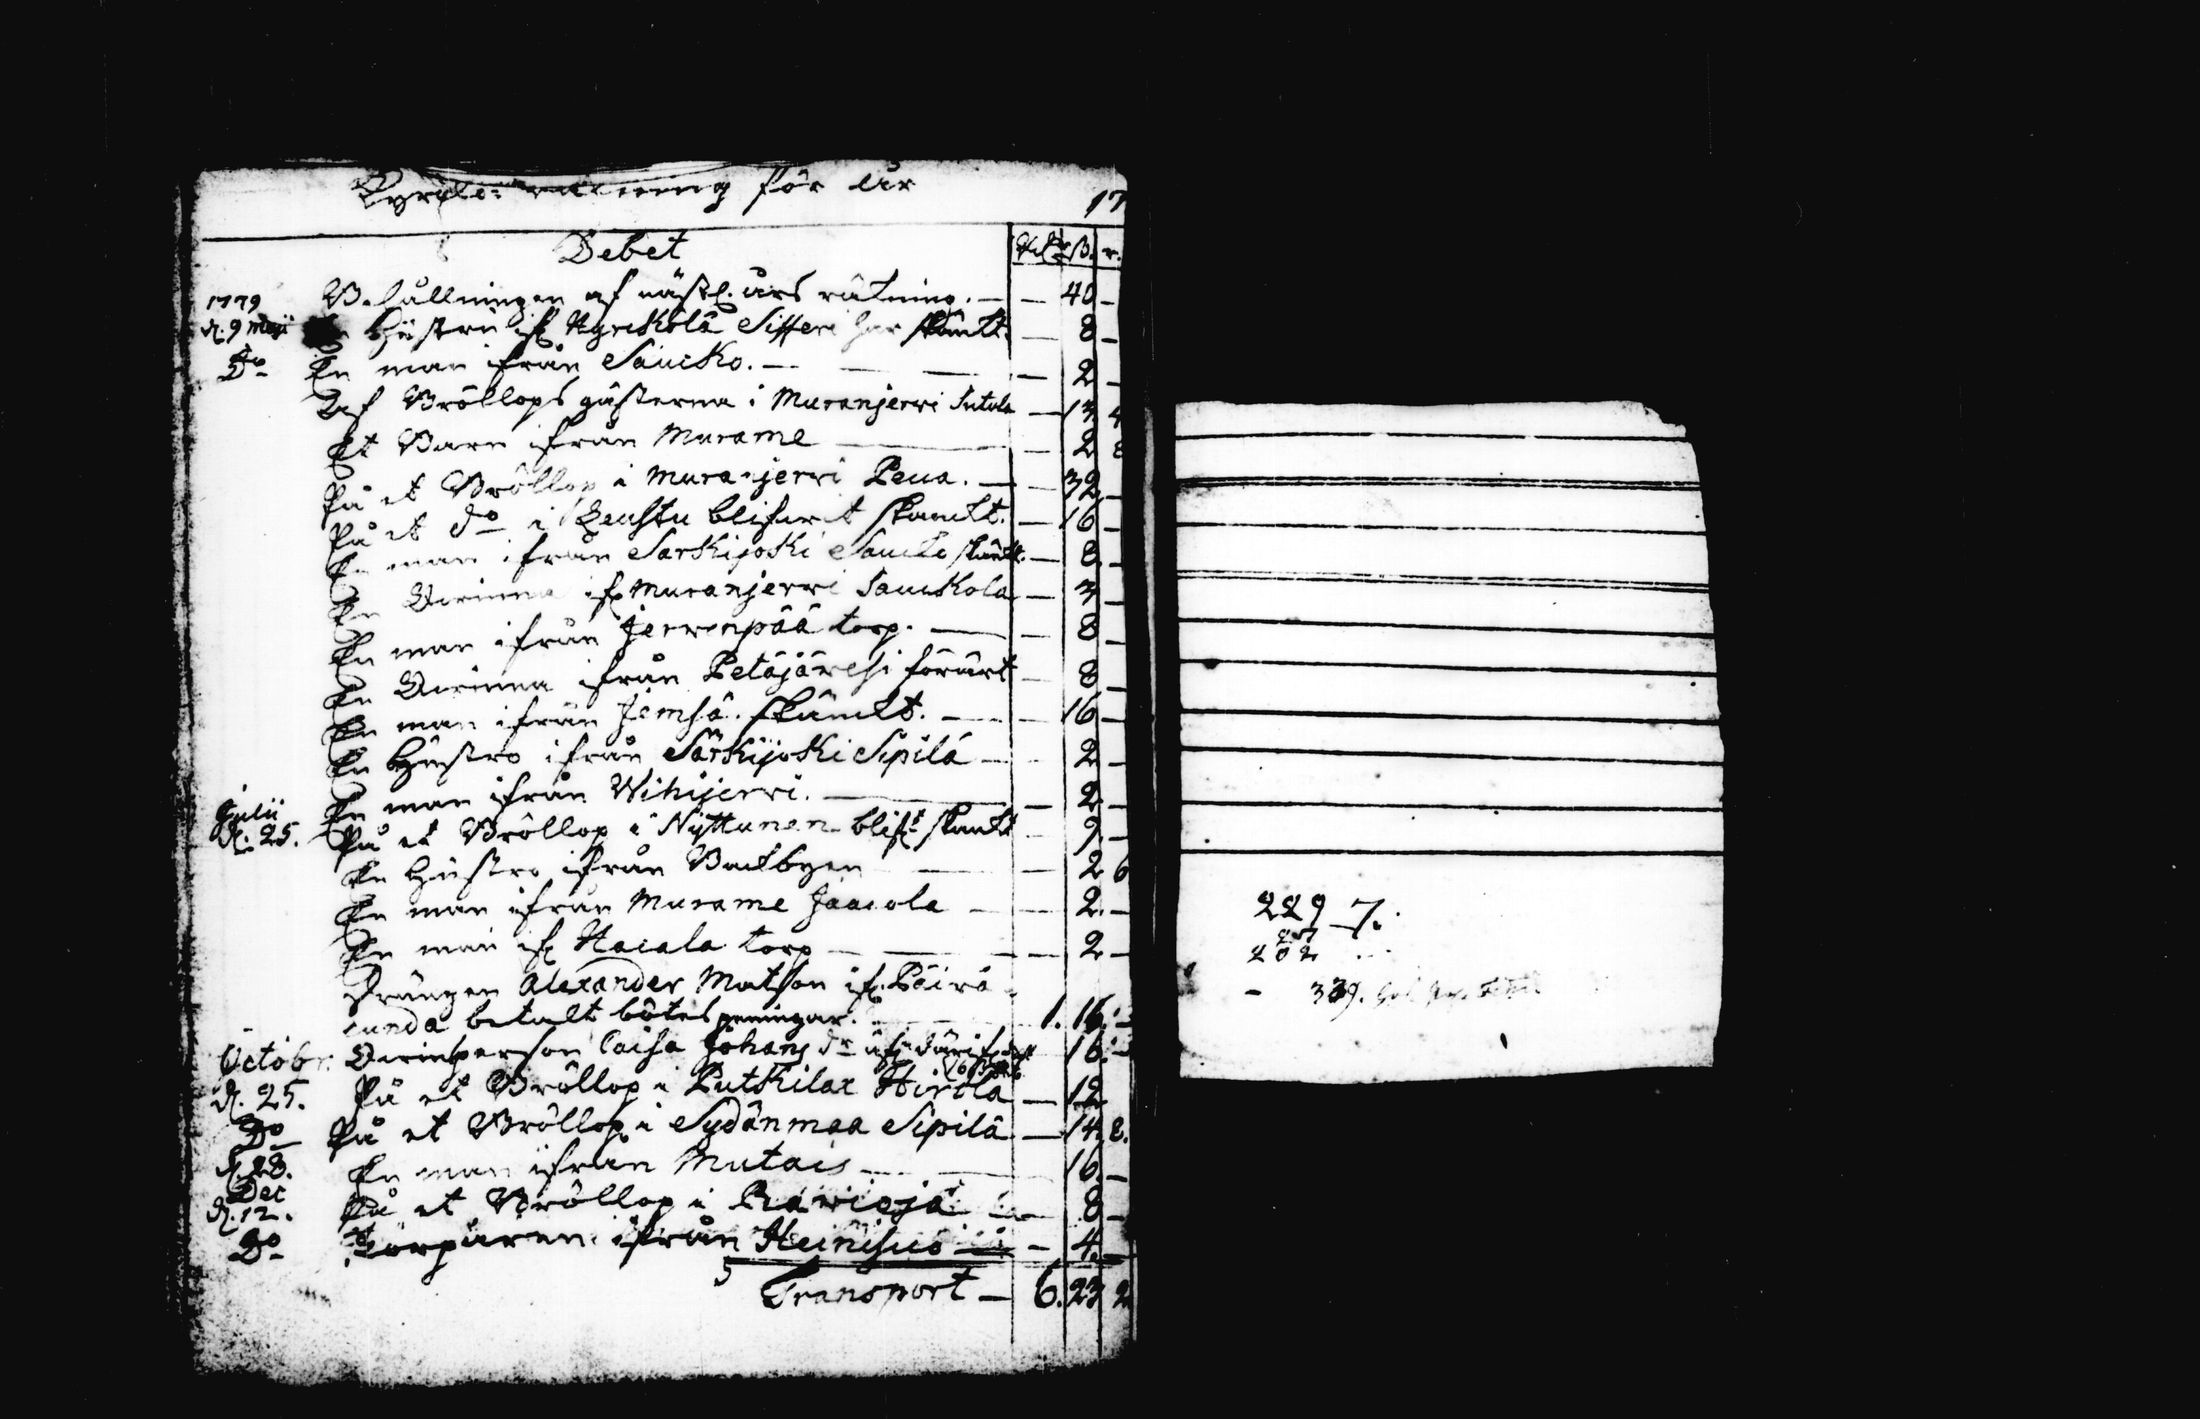 Kyrkio räkning för år 17
Debet Rdr ß. r.
1779 Behållningen af nästl. års räkning. — — 40 —
d. 9 Maji En Hustru ifr. Agriskola Sifferi har skänkt — 8 —
Do En man ifrån Saucko. — — 2 —
Af Bröllops gästerna i Muranjerwi Intola — 13 4
Et Barn ifrån Murame — 2 8
På et Bröllop i Muranjerwi Peua. — — 32 —
På et do i Leustu blifwit skänckt. — 16 —
En man ifrån Sarkijoki Saucko skänkt. — 8 —
En Qwinna ifr. Muranjerwi Sauckola — 4 —
En man ifrån Jerwenpää torp. — — 8 —
En Qwinna ifrån Petäjäwesi förärt — 8 —
En man ifrån Jemsä. skänckt. — — 16 —
En Hustro ifrån Särkijoki Sipilä — — 2 —
En man ifrån Wihijerwi. — — 2 —
Julii d. 25. På et Bröllop i Nyttunen blift skänkt — 9. —
En Hustro ifrån Backbyen — — 2 6
En man ifrån Murame Jaacola — — 2. —
En man ifr. Hacala torp — — 2 —
Drängen Alexander Matson ifr. Päiwä
cunda betalt bötes penningar. — 1. 16. —
Octobr. Qwinsperson Caisa Johans dr — 16. —
d. 25. På et Bröllop i Putkilax Hirola — 12
Do På et Bröllop i Sydänmaa Sipilä — 14. 8.
d. 28. En man ifrån Mutais — — 16. —
Dec d. 12. På et Bröllop i Rawioja — 8 —
Do Torparen ifrån Heinisuo — 4. —
Transport — 6. 23 2
229 7.
202
- 339.